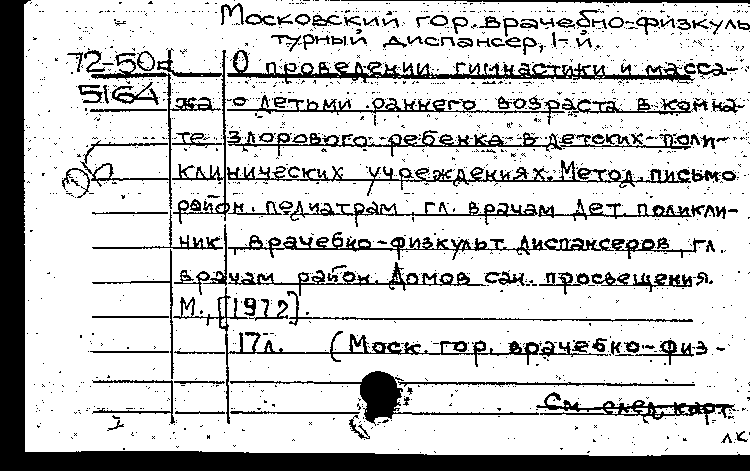 Московский гор. врачебно-физкуль
турный диспансер, 1-й.
72-50д О проведении гимнастики и масса-
516А жа с детьми раннего возраста в комна-
те здорового ребенка в детских поли-
клинических учреждениях. Метод. письмо
район. педиатрам, гл. врачам дет. поликли-
ник, врачебно-физкульт. диспансеров, гл.
врачам район. Домов сан. просвещения.
М., [1972].
17л. (Моск. гор. врачебно-физ-
См. след. карт